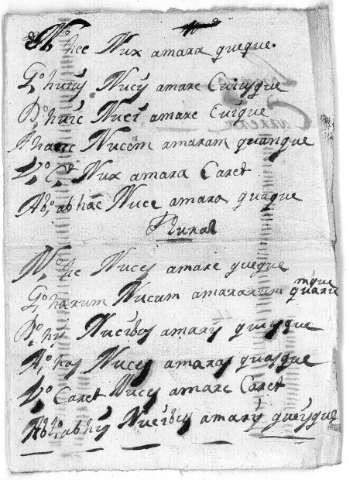 No hæc Nux amara quæque.
Go huius Nucis amaræ Cuiusque
Do huic Nuci amaræ Cuique
A hanc Nucem amaram quamque
Vo Ct Nux amara Caret
Abo, ab hac Nuce amara quaque
Plural
No hæ Nuces amaræ quæque
Go harum Nucum amararum quarumque
Do his Nucibus amarys quisque
Ao has Nuces amaras quasque
Vo Caret Nuces amaræ Caret
Abo, ab hys Nucibus amarys queisque